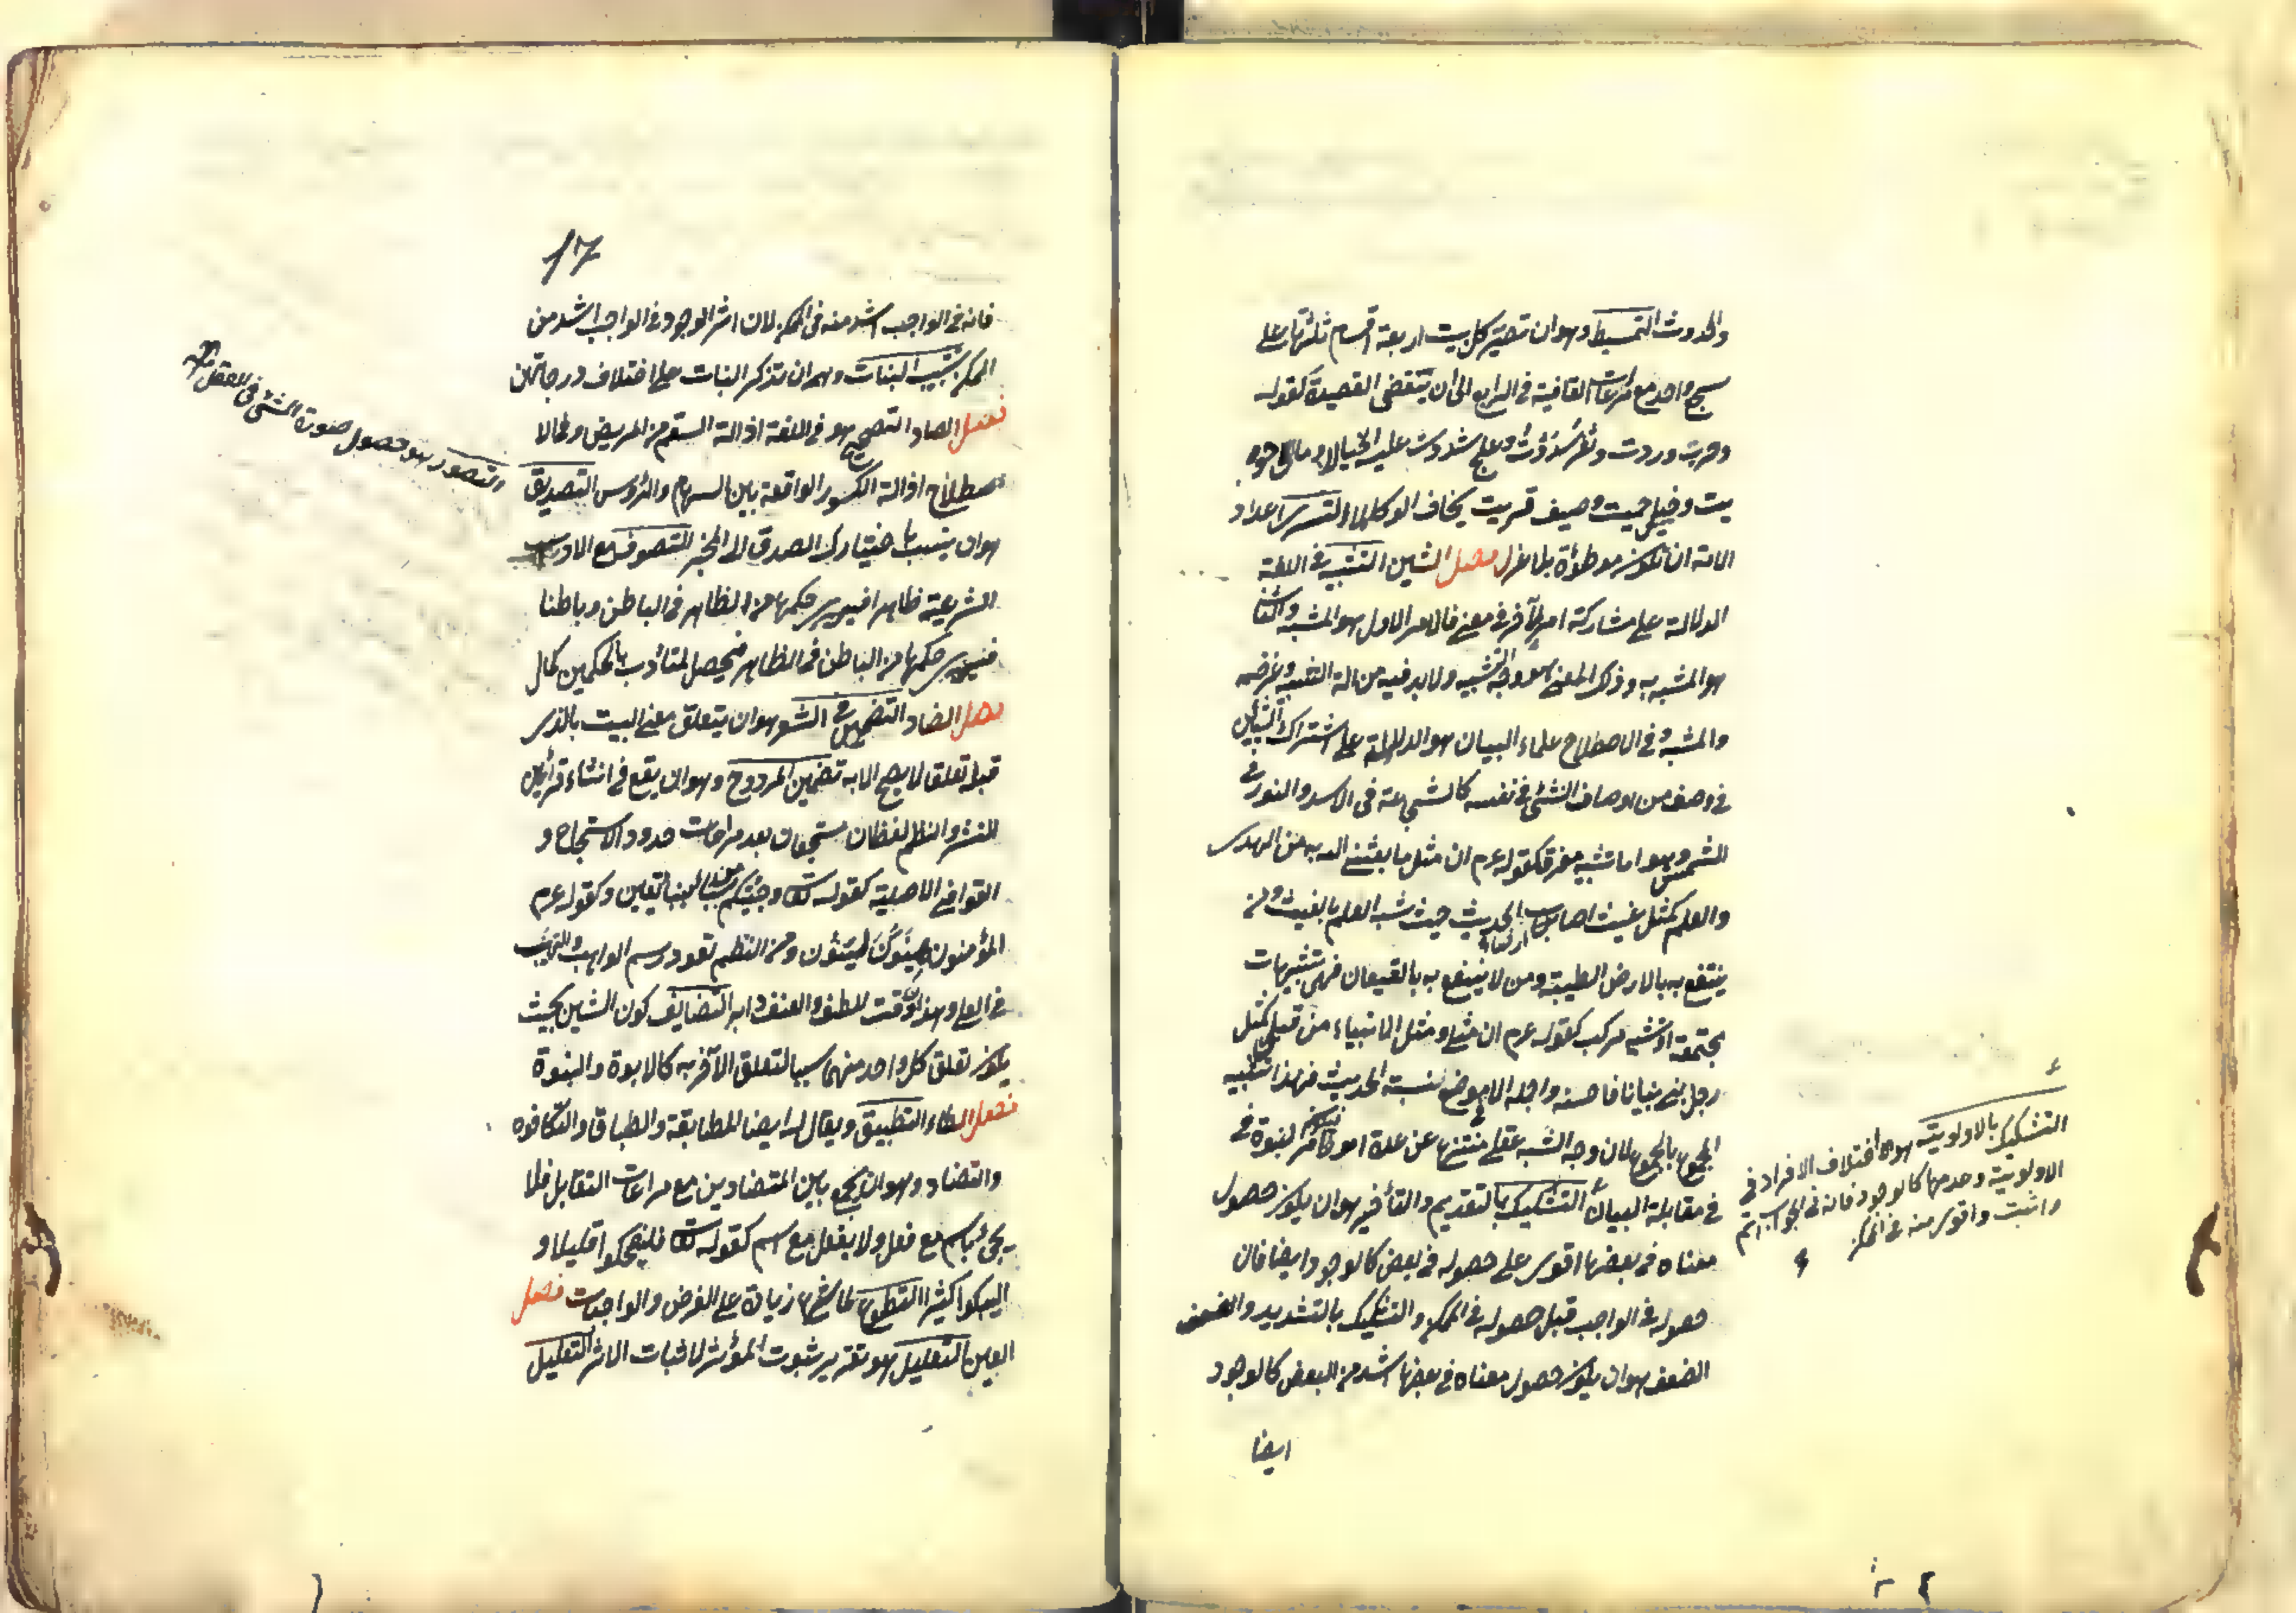 والحدوث التسميط وهو ان تصير كل بيت اربعة اقسام ثلثتها على
سجع واحد مع مراعات القافية في الرابع الى ان تنقضي القصيدة كقوله
وحرب وردت وثغر سددت وعلج شددت عليه الحبالا ومال حويت
وخيل حميت وضيف قريت يخاف الوكالا التسري اعداد
الامة ان تكون موطوءة بلا عزل فصل الشين التشبيه في اللغة
الدلالة على مشاركة امر لآخر في معنى فالامر الاول هو المشبه والثاني
هو المشبه به وذلك المعنى هو وجه التشبيه ولا بد فيه من الة التشبيه وغرضه
والمشبه وفي الاصطلاح علماء البيان هو الدلالة على اشتراك الشيئين
في وصف من اوصاف الشئ في نفسه كالشجاعة في الاسد والنور في
الشمس وهو اما تشبيه مفرق كقوله عم ان مثل ما بعثني الله به من الهدى
والعلم كمثل غيث اصاب ارضا الحديث حيث شبه العلم بالغيث ومن
ينتفع به بالارض الطيبة ومن لا ينتفع به بالقيعان فهي تشبيهات
مجتمعة او تشبيه مركب كقوله عم ان مثلي ومثل الانبياء من قبلي كمثل
رجل بنى بنيانا فاحسنه واجمله الا موضع لبنة الحديث فهذا تشبيه
المجموع بالمجموع لان وجه الشبه عقلي منتزع عن عدة امور فيكون امر النبوة في
في مقابلة البيان التشكيك بالتقديم والتأخير هو ان يكون حصول
معناه في بعضها اقوى على حصوله في بعض كالوجود ايضا فان
حصوله في الواجب قبل حصوله في الممكن والتشكيك بالتشديد والضعف
الضعف هو ان يكون حصول معناه في بعضها اشد من البعض كالوجود
ايضا
التشكيك بالاولوية هو اختلاف الافراد في
الاولوية وعدمها كالوجود فانه في الواجب اتم
واثبت واقوى منه في الممكن
17
فانه في الواجب اشد منه في الممكن لان اثر الوجود في الواجب اشد من
الممكن تشبيب البنات وهو ان تذكر البنات على اختلاف درجاتهن
فصل الصاد التصحيح هو في اللغة ازالة السقم من المريض وفي الا
صطلاح ازالة الكسور الواقعة بين السهام والرؤس التصديق
هو ان ينسب باختيارك الصدق الى المخبر التصوف مع الادب
الشرعية ظاهرا فيسري حكمها من الظاهر في الباطن وباطنا
فيسري حكمها من الباطن في الظاهر فيحصل للمتأدب بالحكمين كمال
فصل الضاد التضمين في الشعر هو ان يتعلق معنى البيت بالذي
قبله تعلقا لا يصح الا به تضمين المزدوج وهو ان يقع في اثناء قرائن
النثر والنظم لفظان مسجعان بعد مراعات حدود الاسجاع و
القوافي الاصلية كقوله تعالى وجئتك من سبأ بنبأ يقين وكقوله عم
المؤمنون هينون لينون ومن النظم تعود رسم الوهب والنهب
في العلى وهذان وقت اللطف والعنف دأبه التضايف كون الشيئين بحيث
يكون تعلق كل واحد منهما سببا لتعلق الآخر به كالابوة والبنوة
فصل الطاء التطبيق ويقال له ايضا المطابقة والطباق والتكافؤ
والتضاد وهو ان يجمع بين المتضادين مع مراعات التقابل فلا
يجئ باسم مع فعل ولا بفعل مع اسم كقوله تعالى فليضحكوا قليلا و
ليبكوا كثيرا التطوع لما شرع زيادة على الفرض والواجبات فصل
العين التعليل هو تقرير ثبوت المؤثر لاثبات الاثر التعليل
والتصور هو حصول صورة الشئ في العقل صح